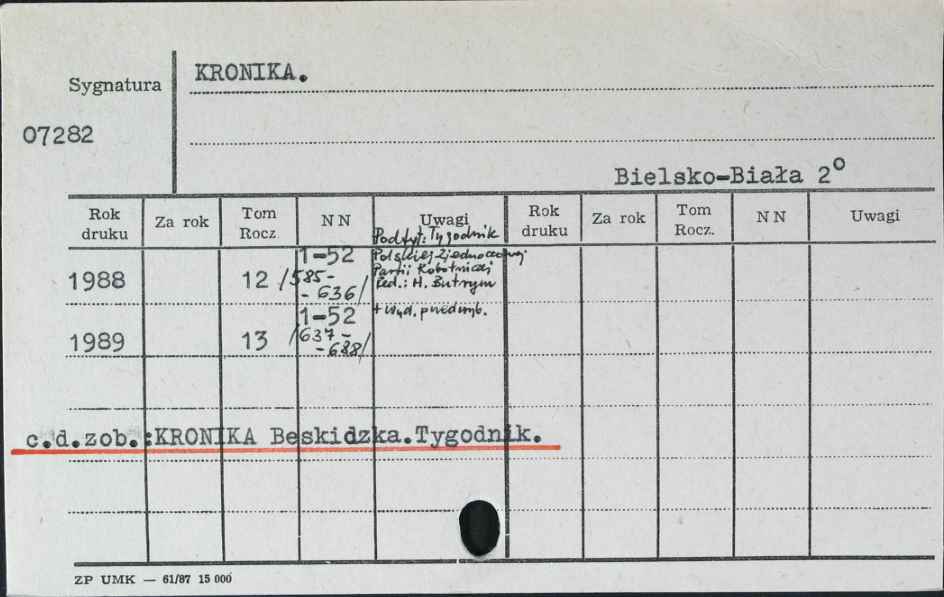 KRONIKA.
Sygnatura
07282
Bielsko-Biała 2°
Rok druku Za rok Tom Rocz. NN Uwagi Rok druku Za rok Tom Rocz. NN Uwagi
Podtyt: Tygodnik
1-52 Polskiej Zjednoczonej
1988 12 /585- Partii Robotniczej
-636/ Red.: H. Butrym
1-52 + wyd. przedmb.
1989 13 /637-
-688/
c.d.zob.:KRONIKA Beskidzka.Tygodnik.
ZP UMK — 61/87 15 000